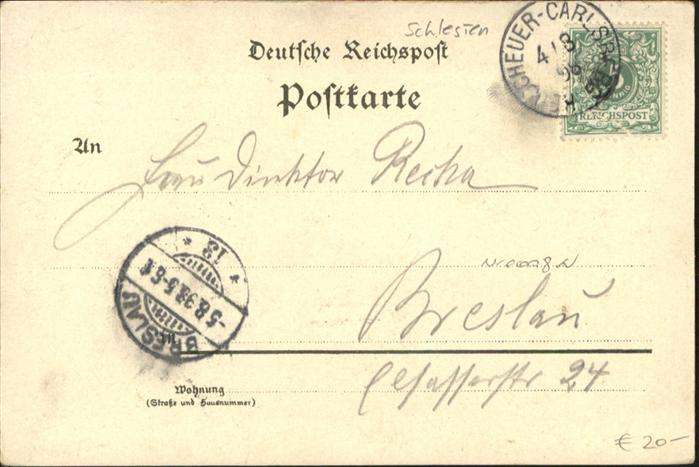 Schlesien
Deutsche Reichspost
Postkarte
CHEUER-CARLSR
4/8
98
REICHSPOST
An
Frau Direktor Recha
13
5.8.98.5-6.N
BRESLAU
Breslau
Elsasserstr 24
Wohnung
(Straße und Hausnummer)
€ 20-